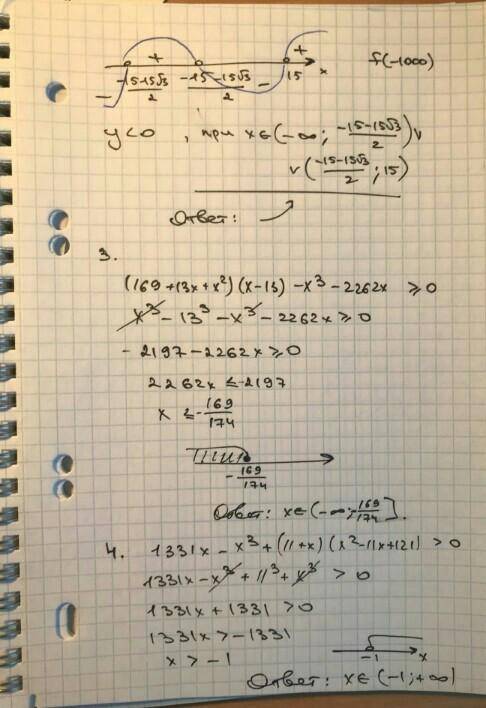 + +
- (-15-15√3)/2 (-15-15√3)/2 - 15 x f(-1000)
y<0, при x∈(-∞; (-15-15√3)/2)∨
∨((-15-15√3)/2; 15)
Ответ:
3.
(169+13x+x²)(x-13)-x³-2262x ≥0
x³-13³-x³-2262x≥0
-2197-2262x≥0
2262x≤-2197
x ≤-169/174
-169/174
Ответ: x∈(-∞;-169/174].
4. 1331x-x³+(11+x)(x²-11x+121)>0
1331x-x³+11³+x³ >0
1331x+1331 >0
1331x>-1331
x > -1
-1 x
Ответ: x∈(-1;+∞)